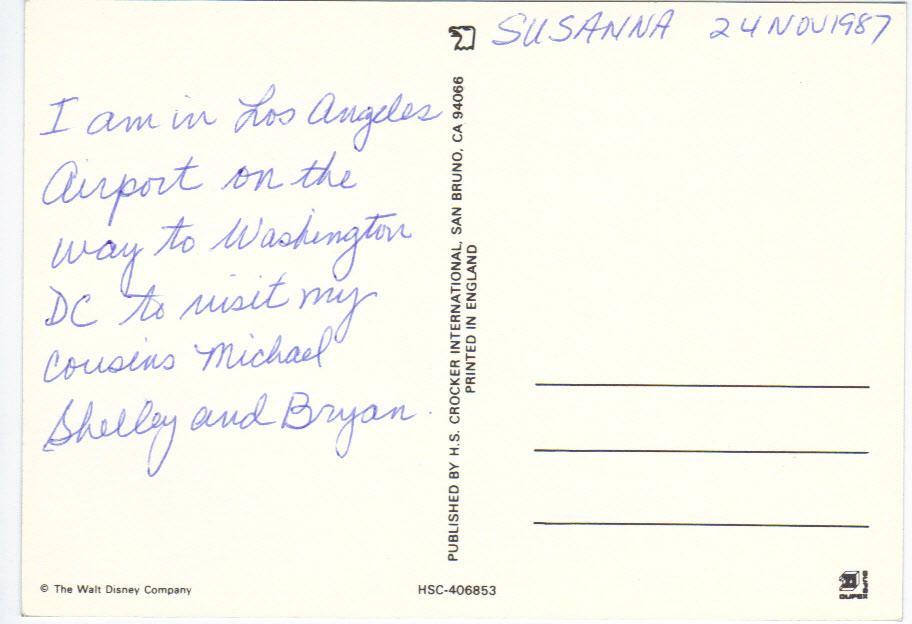 SUSANNA 24 NOV 1987
I am in Los Angeles
Airport on the
way to Washington
DC to visit my
cousins Michael
Shelley and Bryan.
PUBLISHED BY H.S. CROCKER INTERNATIONAL, SAN BRUNO, CA 94066
PRINTED IN ENGLAND
© The Walt Disney Company
HSC-406853
DUFEX
DUFEX